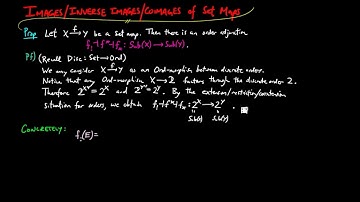 IMAGES/INVERSE IMAGES/COIMAGES of Set Maps
Prop. Let X →f Y be a set map. Then there is an order adjunction
f! ⊣ f* ⊣ f* : Sub(X) → Sub(Y).
Pf) (Recall Disc: Set → Ord)
We may consider X →f Y as an Ord-morphism between discrete orders.
Notice that any Ord-morphism X → 2 factors through the discrete order 2.
Therefore 2^X = 2^X and 2^Y = 2^Y. By the extension/restriction/coextension
situation for orders, we obtain f! ⊣ f* ⊣ f* : 2^X → 2^Y.
Sub(X) Sub(Y)
CONCRETELY:
f!(E)=